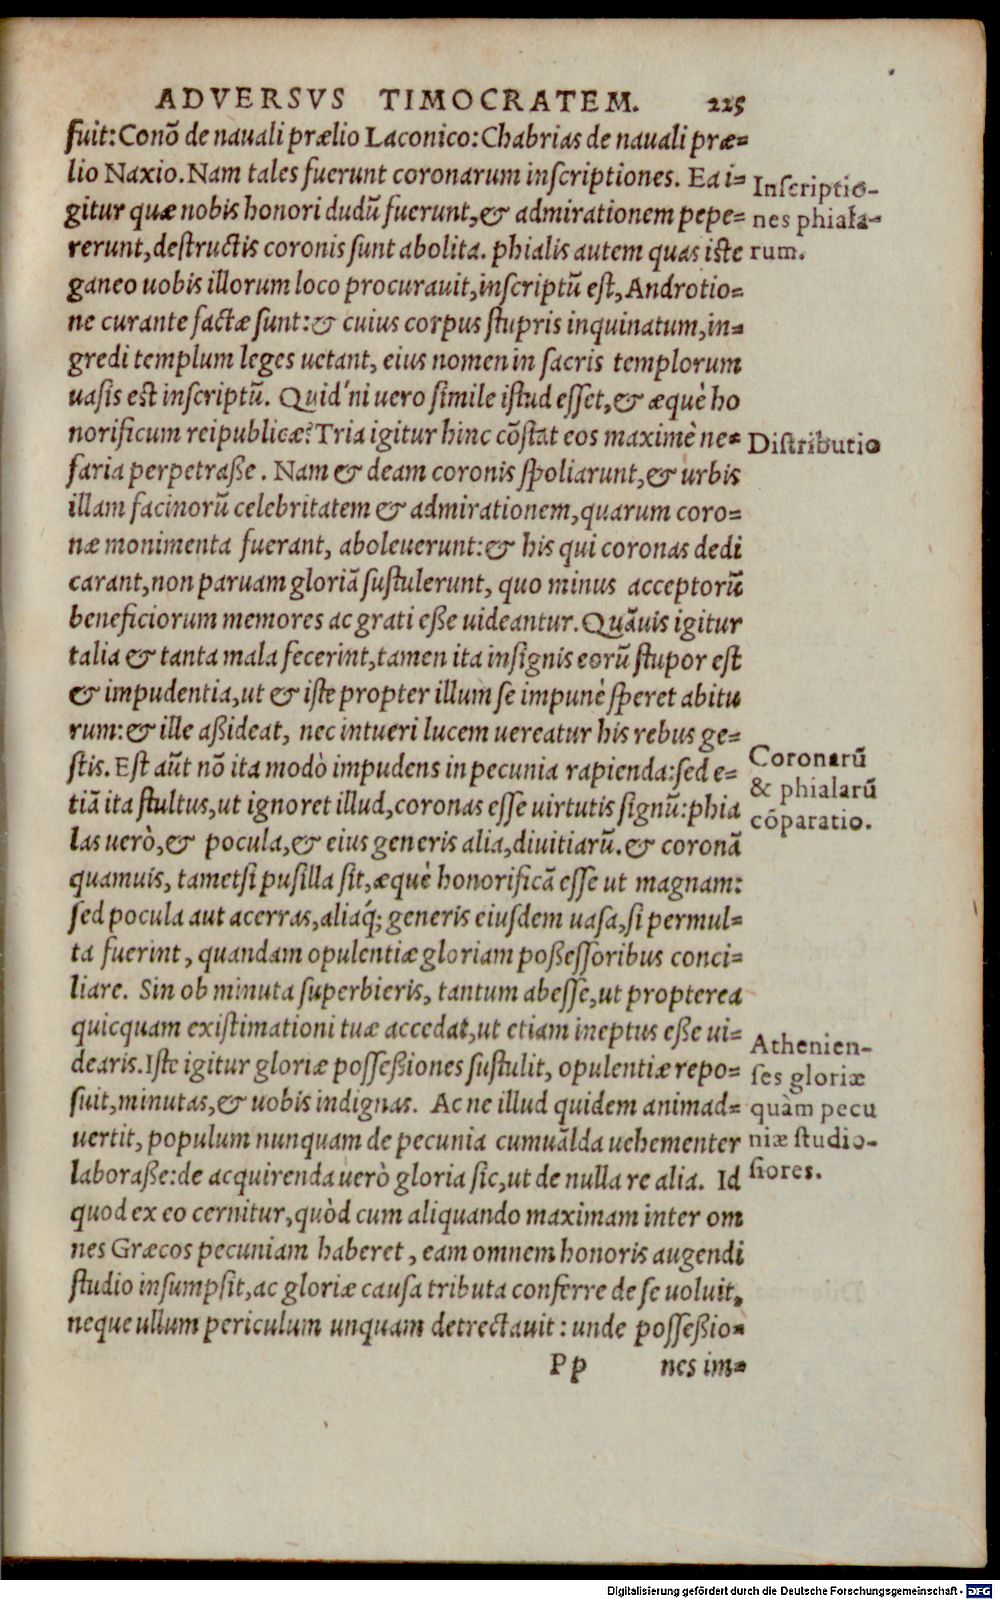 ADVERSVS TIMOCRATEM. 225
fuit: Conō de nauali prælio Laconico: Chabrias de nauali præ=
lio Naxio. Nam tales fuerunt coronarum inscriptiones. Ea i=
gitur quæ nobis honori dudū fuerunt, & admirationem pepe=
rerunt, destructis coronis sunt abolita. phialis autem quas iste
ganeo uobis illorum loco procurauit, inscriptū est, Androtio=
ne curante factæ sunt: & cuius corpus stupris inquinatum, in=
gredi templum leges uetant, eius nomen in sacris templorum
uasis est inscriptū. Quid'ni uero simile istud esset, & æquè ho
norificum reipublicæ? Tria igitur hinc cōstat eos maximè ne=
faria perpetraße. Nam & deam coronis spoliarunt, & urbis
illam facinorū celebritatem & admirationem, quarum coro=
næ monimenta fuerant, aboleuerunt: & his qui coronas dedi
carant, non paruam gloriā sustulerunt, quo minus acceptorū
beneficiorum memores ac grati eße uideantur. Quāuis igitur
talia & tanta mala fecerint, tamen ita insignis eorū stupor est
& impudentia, ut & iste propter illum se impunè speret abitu
rum: & ille aßideat, nec intueri lucem uereatur his rebus ge=
stis. Est aūt nō ita modò impudens in pecunia rapienda: sed e=
tiā ita stultus, ut ignoret illud, coronas esse uirtutis signū: phia
las uerò, & pocula, & eius generis alia, diuitiarū. & coronā
quamuis, tametsi pusilla sit, æquè honorificā esse ut magnam:
sed pocula aut acerras, aliaq́; generis eiusdem uasa, si permul=
ta fuerint, quandam opulentiæ gloriam poßessoribus conci=
liare. Sin ob minuta superbieris, tantum abesse, ut propterea
quicquam existimationi tuæ accedat, ut etiam ineptus eße ui=
dearis. Iste igitur gloriæ posseßiones sustulit, opulentiæ repo=
suit, minutas, & uobis indignas. Ac ne illud quidem animad=
uertit, populum nunquam de pecunia cumuālda uehementer
laboraße: de acquirenda uerò gloria sic, ut de nulla re alia. Id
quod ex eo cernitur, quòd cum aliquando maximam inter om
nes Græcos pecuniam haberet, eam omnem honoris augendi
studio insumpsit, ac gloriæ causa tributa conferre de se uoluit,
neque ullum periculum unquam detrectauit: unde posseßio=
Pp nes im=
Inscriptio-
nes phiala-
rum.
Distributio
Coronarū
& phialarū
cōparatio.
Athenien-
ses gloriæ
quàm pecu
niæ studio-
siores.
Digitalisierung gefördert durch die Deutsche Forschungsgemeinschaft - DFG